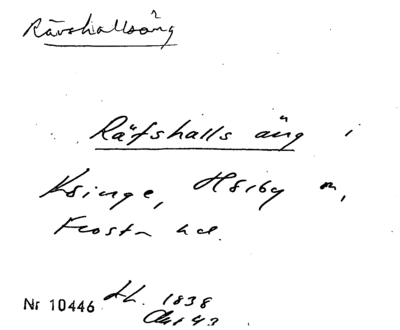 Rävshallsäng
Räfshalls äng i
Ksinge, Hsiby m,
Frosta hd.
Nr 10446 Lh. 1838
Akt 43